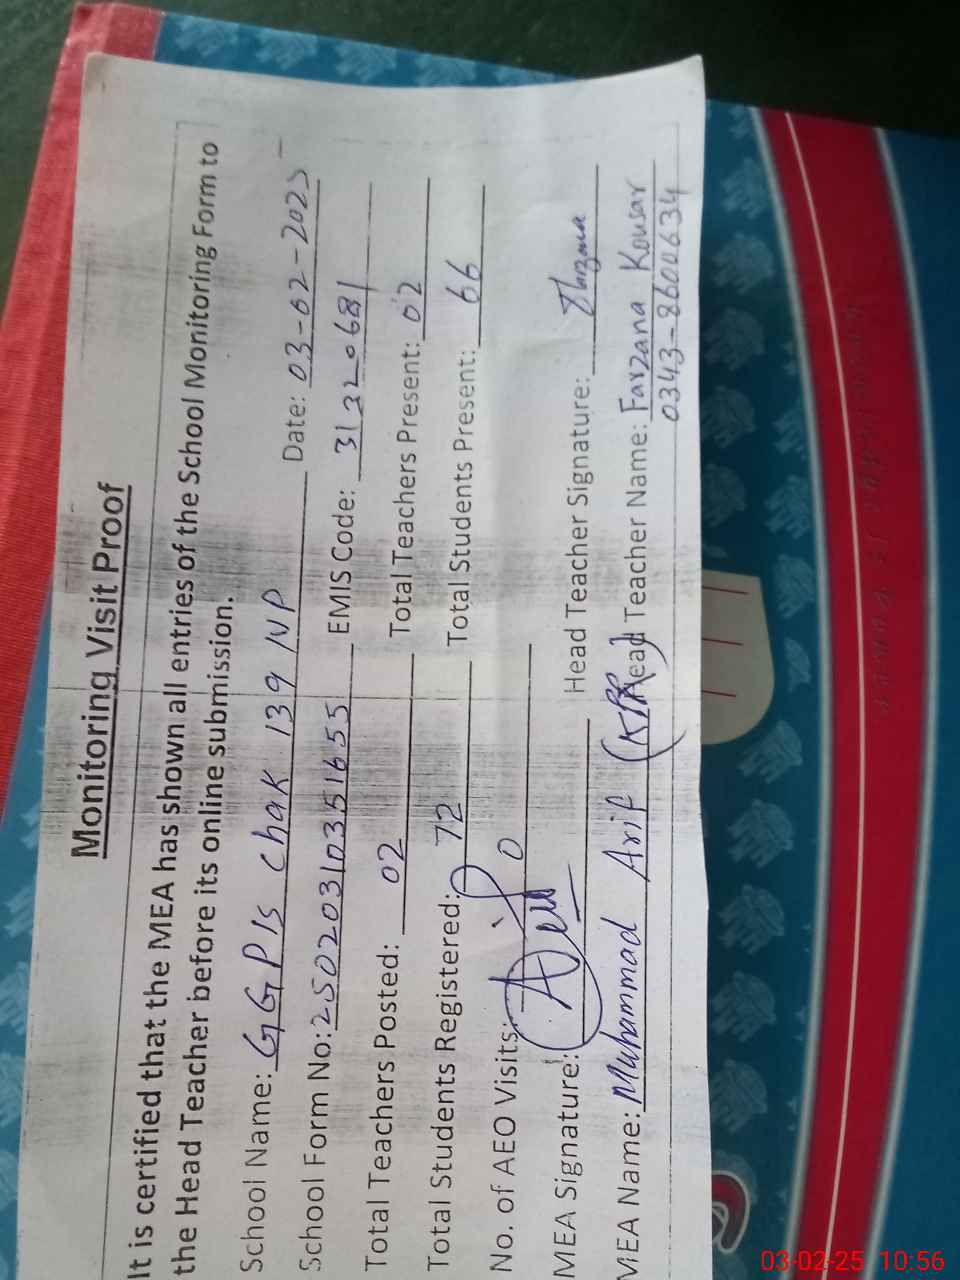 Monitoring Visit Proof
It is certified that the MEA has shown all entries of the School Monitoring Form to
the Head Teacher before its online submission.
School Name: GGPIS chak 139 NP Date: 03-02-2025
School Form No: 250203103551655 EMIS Code: 31320681
Total Teachers Posted: 02 Total Teachers Present: 02
Total Students Registered: 72 Total Students Present: 66
No. of AEO Visits: 0
MEA Signature: Arif Head Teacher Signature: Farzana
MEA Name: Muhammad Arif Head Teacher Name: Farzana Kousar
0343-8600634
03-02-25 10:56